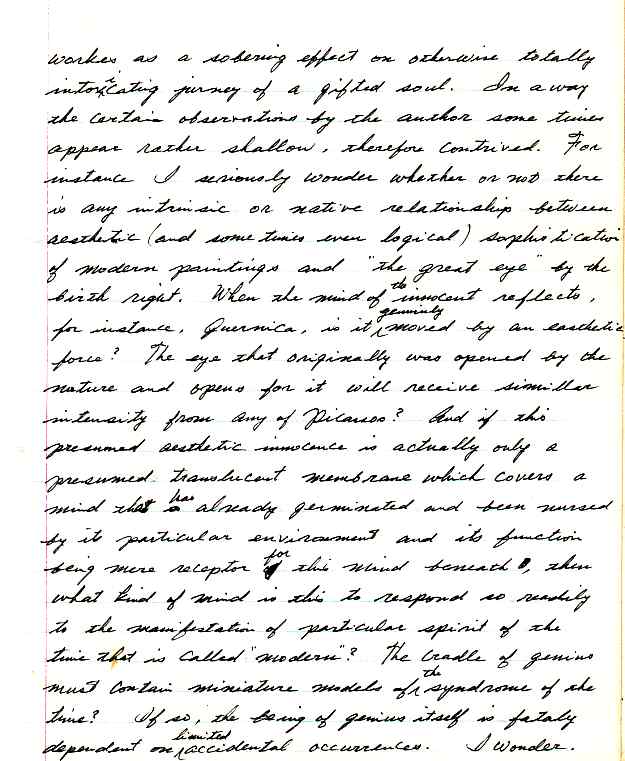 workes as a sobering effect on otherwise totally
intoxicating jurney of a gifted soul. In a way
the certain observations by the author some times
appear rather shallow, therefore contrived. For
instance I seriously wonder whether or not there
is any intrinsic or native relationship between
aesthetic (and some times even logical) sophistication
of modern paintings and "the great eye" by the
birth right. When the mind of the innocent reflects,
for instance, Guernica, is it genuinly moved by an easthetic
force? The eye that originally was opened by the
nature and opens for it will receive simillar
intensity from any of Picassos? And if this
presumed aesthetic innocence is actually only a
presumed translucent membrane which covers a
mind that has already germinated and been nursed
by its particular environment and its function
being mere receptor for this mind beneath, then
what kind of mind is this to respond so readily
to the manifestation of particular spirit of the
time that is called "modern"? The cradle of genius
must contain miniature models of the syndrome of the
time? If so, the being of genius itself is fataly
dependent on limited accidental occurrences. I wonder.